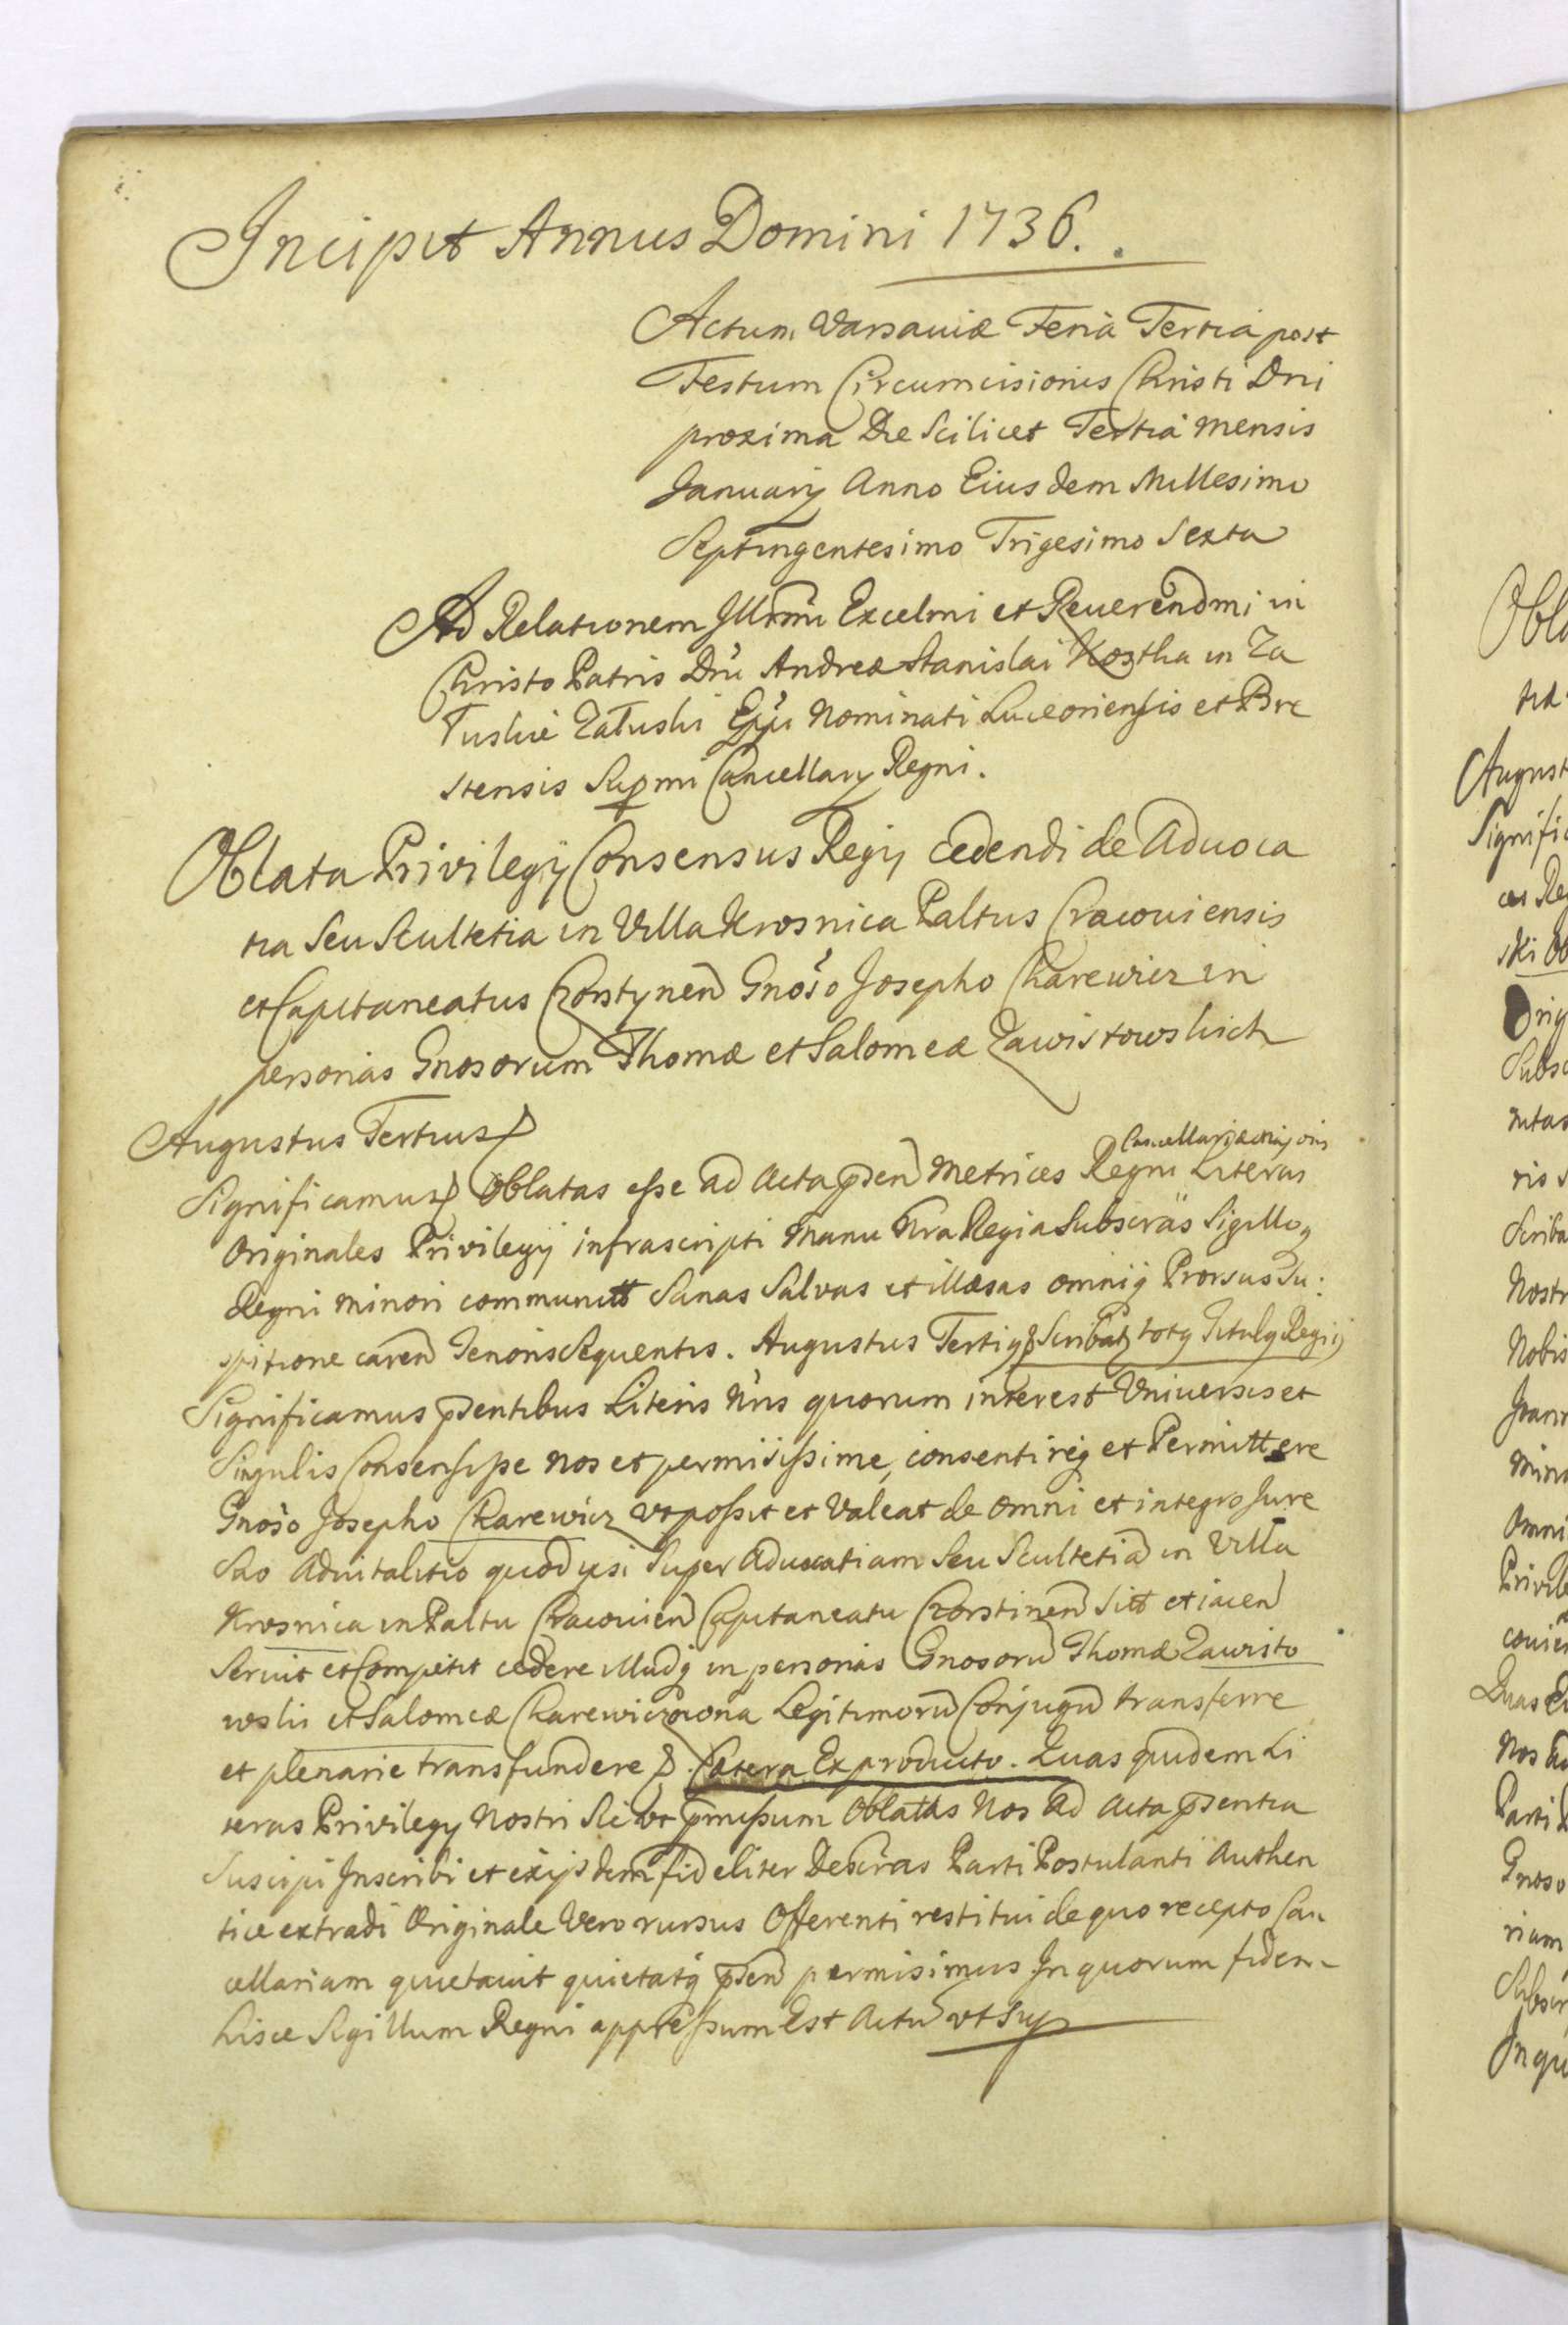 Incipit Annus Domini 1736.
Actum Varsaviæ Feriâ Tertiâ post
Festum Circumcisionis Christi Dni
proxima Die Scilicet Tertiâ Mensis
Januarij Anno Eiusdem Millesimo
Septingentesimo Trigesimo Sexto
Ad Relationem Illrmi Excelmi et Reuerendmi in
Christo Patris Dni Andreæ Stanislai Kostka in Za
Łuskie Załuski Eppi Nominati Luceoriensis et Bre
stensis Supmi Cancellary Regni.
Oblata Privilegij Consensus Regij cedendi de Aduoca
tia Seu Scultetia in Villa Krosnica Paltus Cracouiensis
et Capitaneatus Czorstynen Gnoso Josepho Charewicz in
personas Gnosorum Thomæ et Salomeæ Zawistowskich
Augustus Tertius
Cancellariæ
Significamus Oblatas esse ad Acta pden Metrices Regni Literas
Originales Privilegij infrascripti Manu Nra Regia Subscras Sigilloq
Regni minori communitt Sanas Salvas et illæsas omniq Prorsus Su:
spitione caren Tenoris Sequentis. Augustus Tertiq Scribat totq Titulq Regij
Significamus pdentibus Literis Nris quorum interest Vniuersis et
Singulis Consensisse nos et permisissime, consentireq et Permittere
Gnoso Josepho Charewicz vt possit et Valeat de omni et integro Jure
Suo Aduitalitio quod ipsi Super Aduocatiam Seu Scultetia in Villa
Krosnica in Paltu Cracouien Capitaneatu Czorstinen Sitt et iacen
Seruit et Competit cedere illudq in personas Gnosoru Thomæ Zawisto
wski et Salomeæ Charewiczowna Legitimoru Conjugu transferre
et plenarie transfundere Cætera Ex producto. Quas quidem Li
teras Privilegij Nostri Sic vt pmissum Oblatas Nos Ad Acta pdentia
Suscipi Inscribi et exijsdem fideliter Descras Parti Postulanti Authen
tice extradi Originale Vero rursus Offerenti restitui de quo recepto Can
cellariam quietauit quietatq pden permisimus In quorum fidem
hisce Sigillum Regni appressum Est Actu vt Sup
Oblu
Augus
Signific